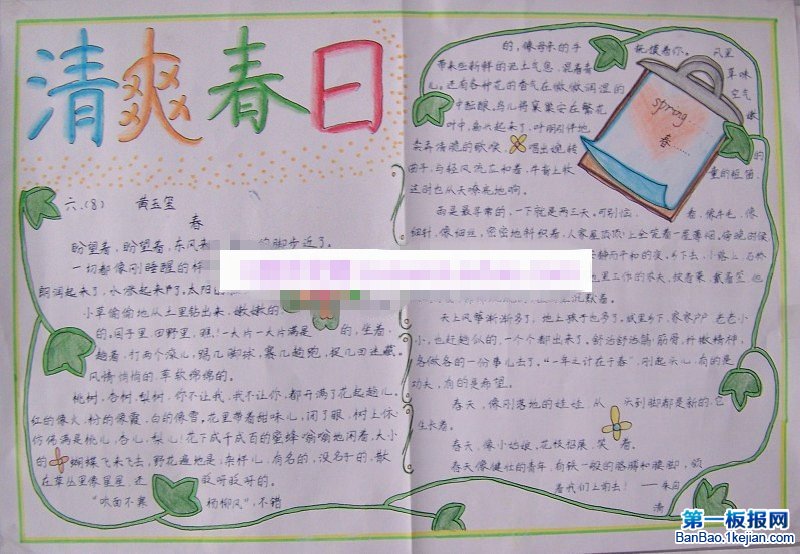 清爽春日
六.(8) 黄玉玺
春
盼望着,盼望着,东风来 的脚步近了。
一切都像刚睡醒的样
朗润起来了,水涨起来了,太阳的
小草偷偷地从土里钻出来,嫩嫩的
的。园子里,田野里,瞧!一大片一大片满是 的,坐着,
趟着,打两个滚儿,踢几脚球,赛几趟跑,捉几回迷藏。
风悄悄的,草软绵绵的。
桃树,杏树,梨树,你不让我,我不让你,都开满了花赶趟儿。
红的像火,粉的像霞,白的像雪。花里带着甜味儿,闭了眼,树上仿
仿佛满是桃儿,杏儿,梨儿!花下成千成百的蜜蜂嗡嗡地闹着,大小
的 蝴蝶飞来飞去,野花遍地是:杂样儿,有名的,没名子的,散
在草丛里像星星,还 眨呀眨的。
“吹面不寒 杨柳风”,不错
的,像母亲的手 抚摸着你。 风里
带来些新鲜的泥土气息,混着青 草味
儿。还有各种花的香气在微微润湿的 空气
中酝酿。鸟儿将窠巢安在繁花
叶中,高兴起来了,呼朋引伴地
卖弄清脆的歌喉 唱出婉转 的
曲子,与轻风流应和着,牛背上牧 童的短笛,
这时也从天嘹亮地响。
雨是最寻常的,一下就是两三天。可别恼, 看,像牛毛,像
细针,像细丝,密密地斜织着,人家屋顶顶上全笼着一层薄烟。傍晚时候
静而平和的夜。乡下去,小路上,石桥
地里工作的农夫,披着蓑,戴着笠,但
默着。
天上风筝渐渐多了,地上孩子也多了。城里乡下,家家户户 老老小
小,也赶趟似的,一个个都出来了。舒活舒活筋骨,抖擞精神,
各做各的一份事儿去了。“一年之计在于春”,刚起头儿,有的是
功夫,有的是希望。
春天,像刚落地的娃娃,从 头到脚都是新的,它
生长着。
春天,像小姑娘,花枝招展,笑 着。
春天像健壮的青年,有铁一般的胳膊和腰脚,领
着我们上前去! ——朱自
清
spring
春
第一板报网
BanBao.1kejian.com